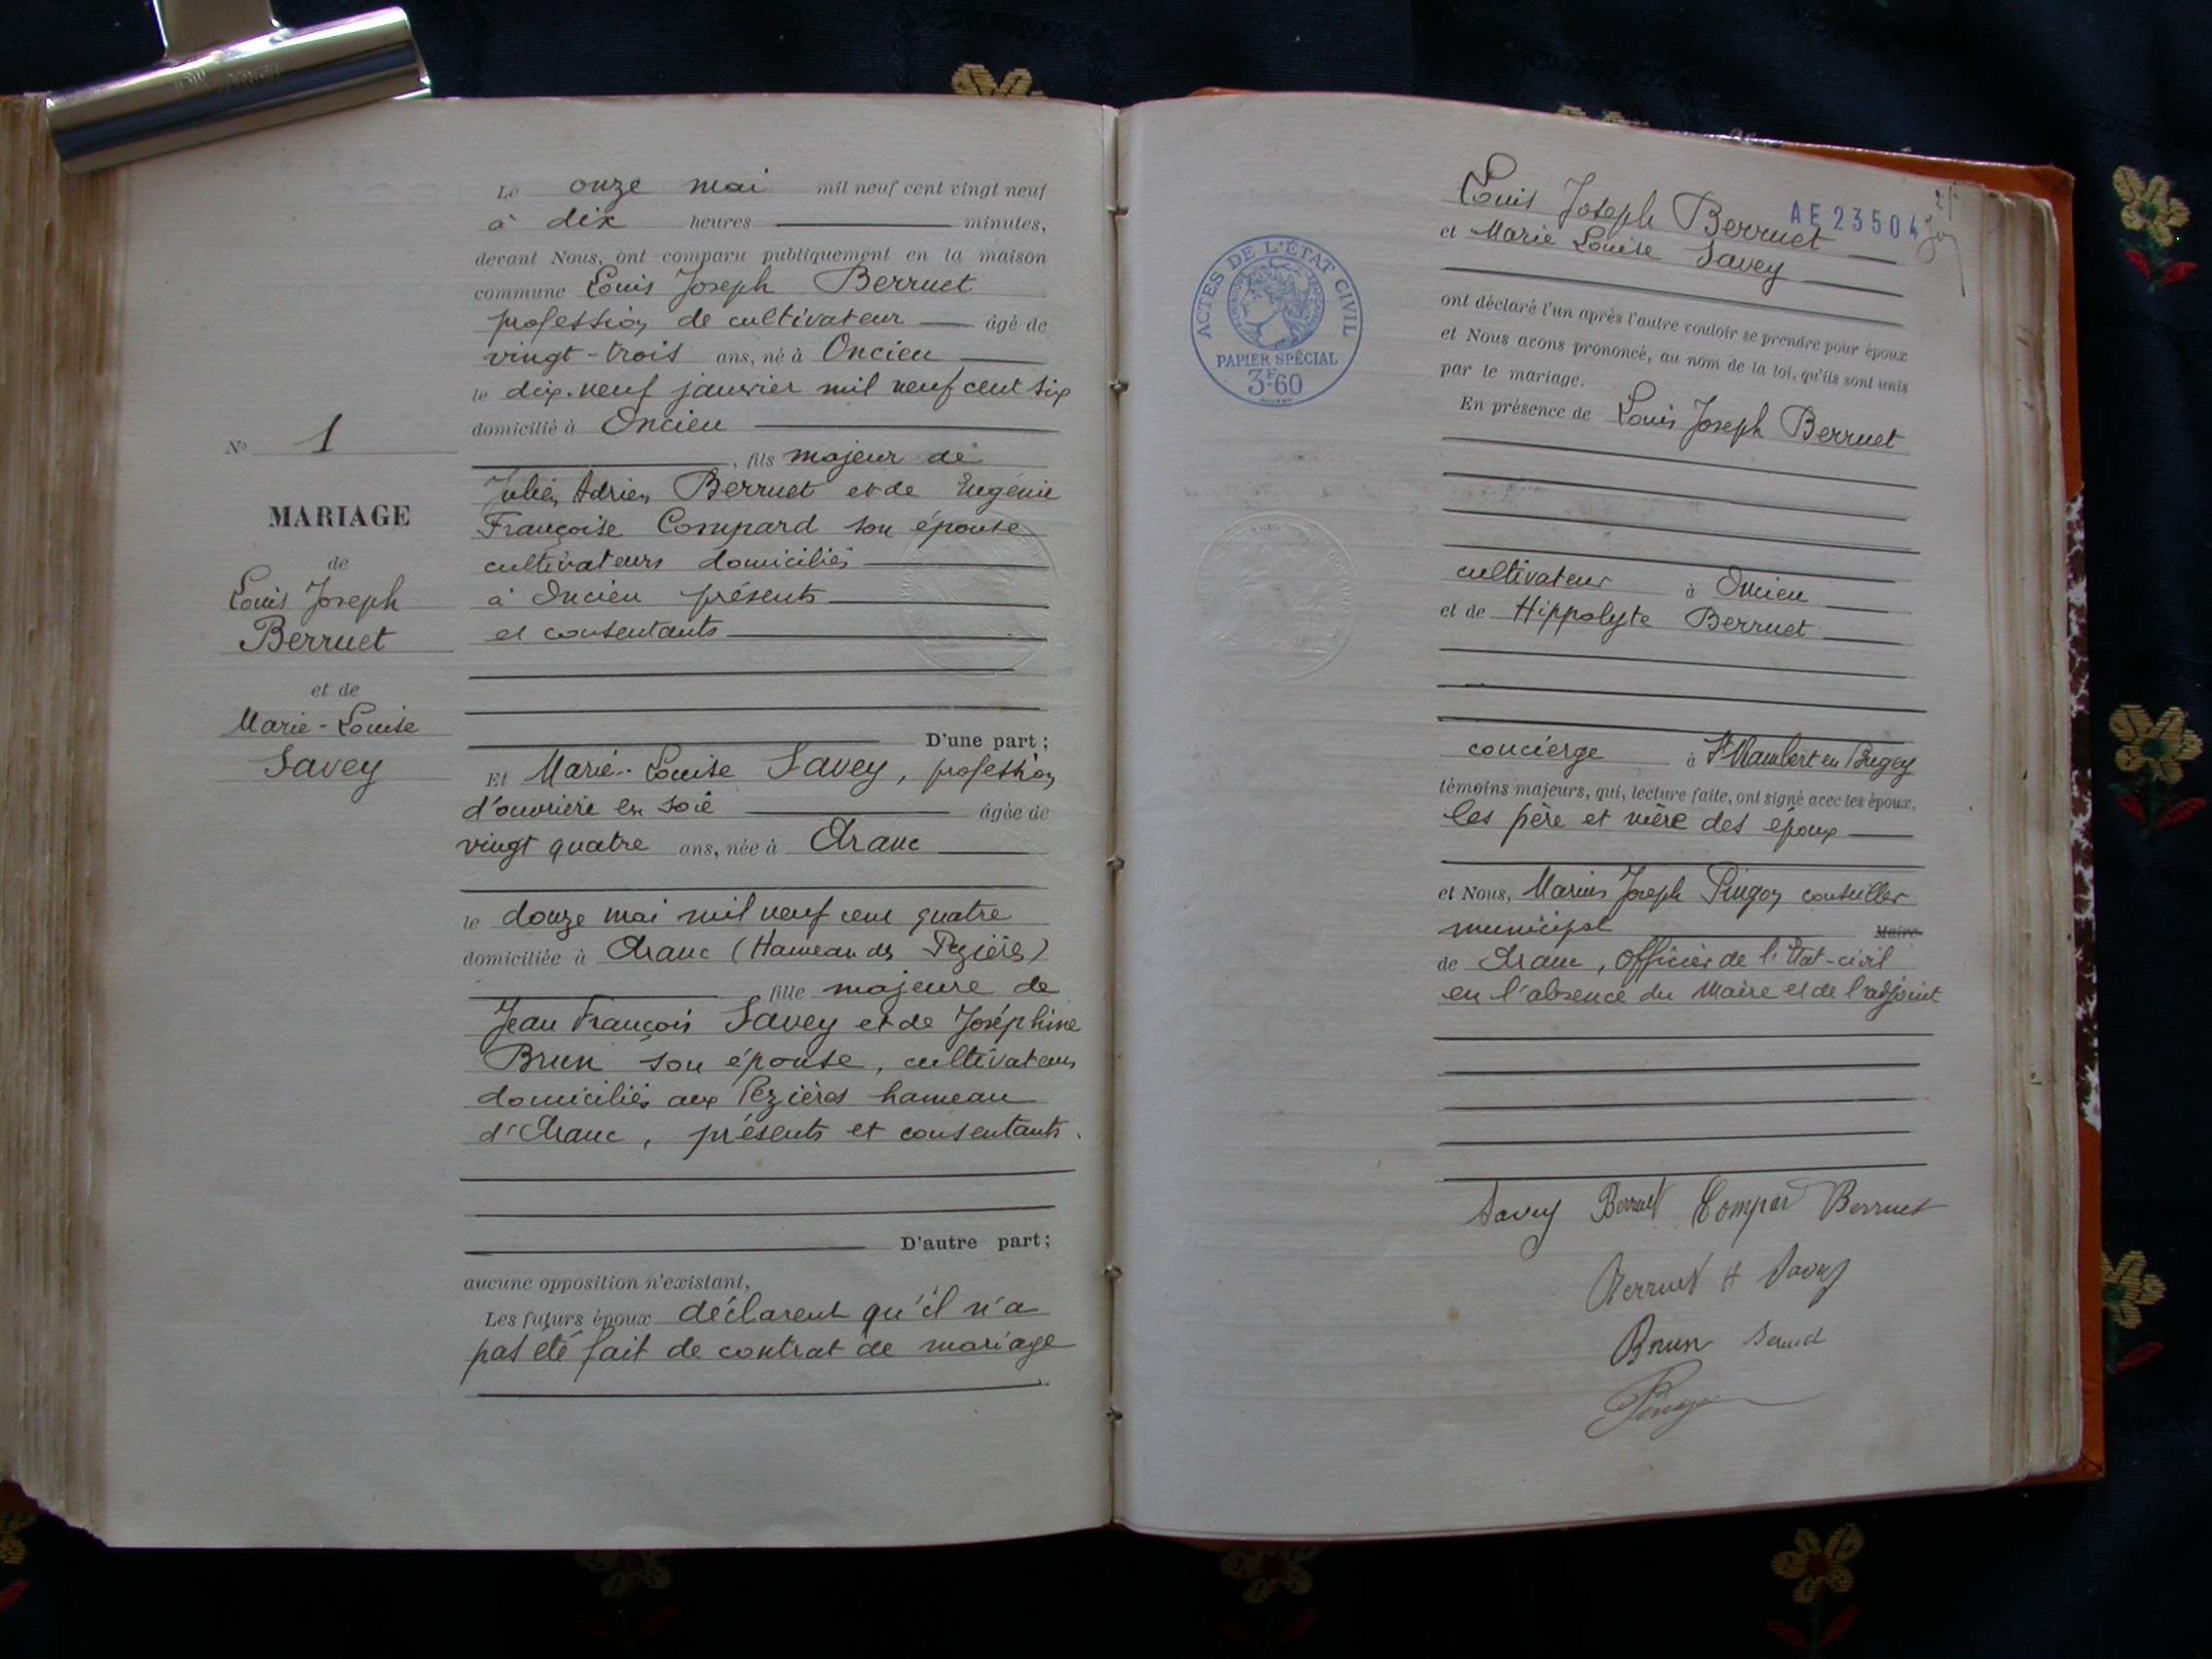 Le onze mai mil neuf cent vingt neuf
à dix heures minutes,
devant Nous, ont comparu publiquement en la maison
commune Louis Joseph Berruet
profession de cultivateur âgé de
vingt-trois ans, né à Oncieu
le dix-neuf janvier mil neuf cent six
domicilié à Oncieu
, fils majeur de
Julien Adrien Berruet et de Eugénie
Françoise Compard son épouse
cultivateurs domiciliés
à Oncieu présents
et consentants
D'une part;
N° 1
MARIAGE
de
Louis Joseph
Berruet
et de
Marie-Louise
Savey
Et Marie-Louise Savey, profession
d'ouvrière en soie âgée de
vingt quatre ans, née à Aranc
le douze mai mil neuf cent quatre
domiciliée à Aranc (Hameau des Pezières)
fille majeure de
Jean François Savey et de Joséphine
Brun son épouse, cultivateurs
domiciliés aux Pezières hameau
d'Aranc, présents et consentants.
D'autre part;
aucune opposition n'existant,
Les futurs époux déclarent qu'il n'a
pas été fait de contrat de mariage
AE 23504
Louis Joseph Berruet
et Marie Louise Savey
ACTES DE L'ÉTAT CIVIL
PAPIER SPÉCIAL
3F60
ont déclaré l'un après l'autre vouloir se prendre pour époux
et Nous avons prononcé, au nom de la loi, qu'ils sont unis
par le mariage.
En présence de Louis Joseph Berruet
cultivateur à Oncieu
et de Hippolyte Berruet
concierge à St Rambert en Bugey
témoins majeurs, qui, lecture faite, ont signé avec les époux,
les père et mère des époux
et Nous, Marius Joseph Pingon conseiller
municipal Maire
de Aranc, Officier de l'Etat-civil
en l'absence du Maire et de l'adjoint
Savey Berruet Compar Berruet
Berruet H Savey
Brun
Pingon